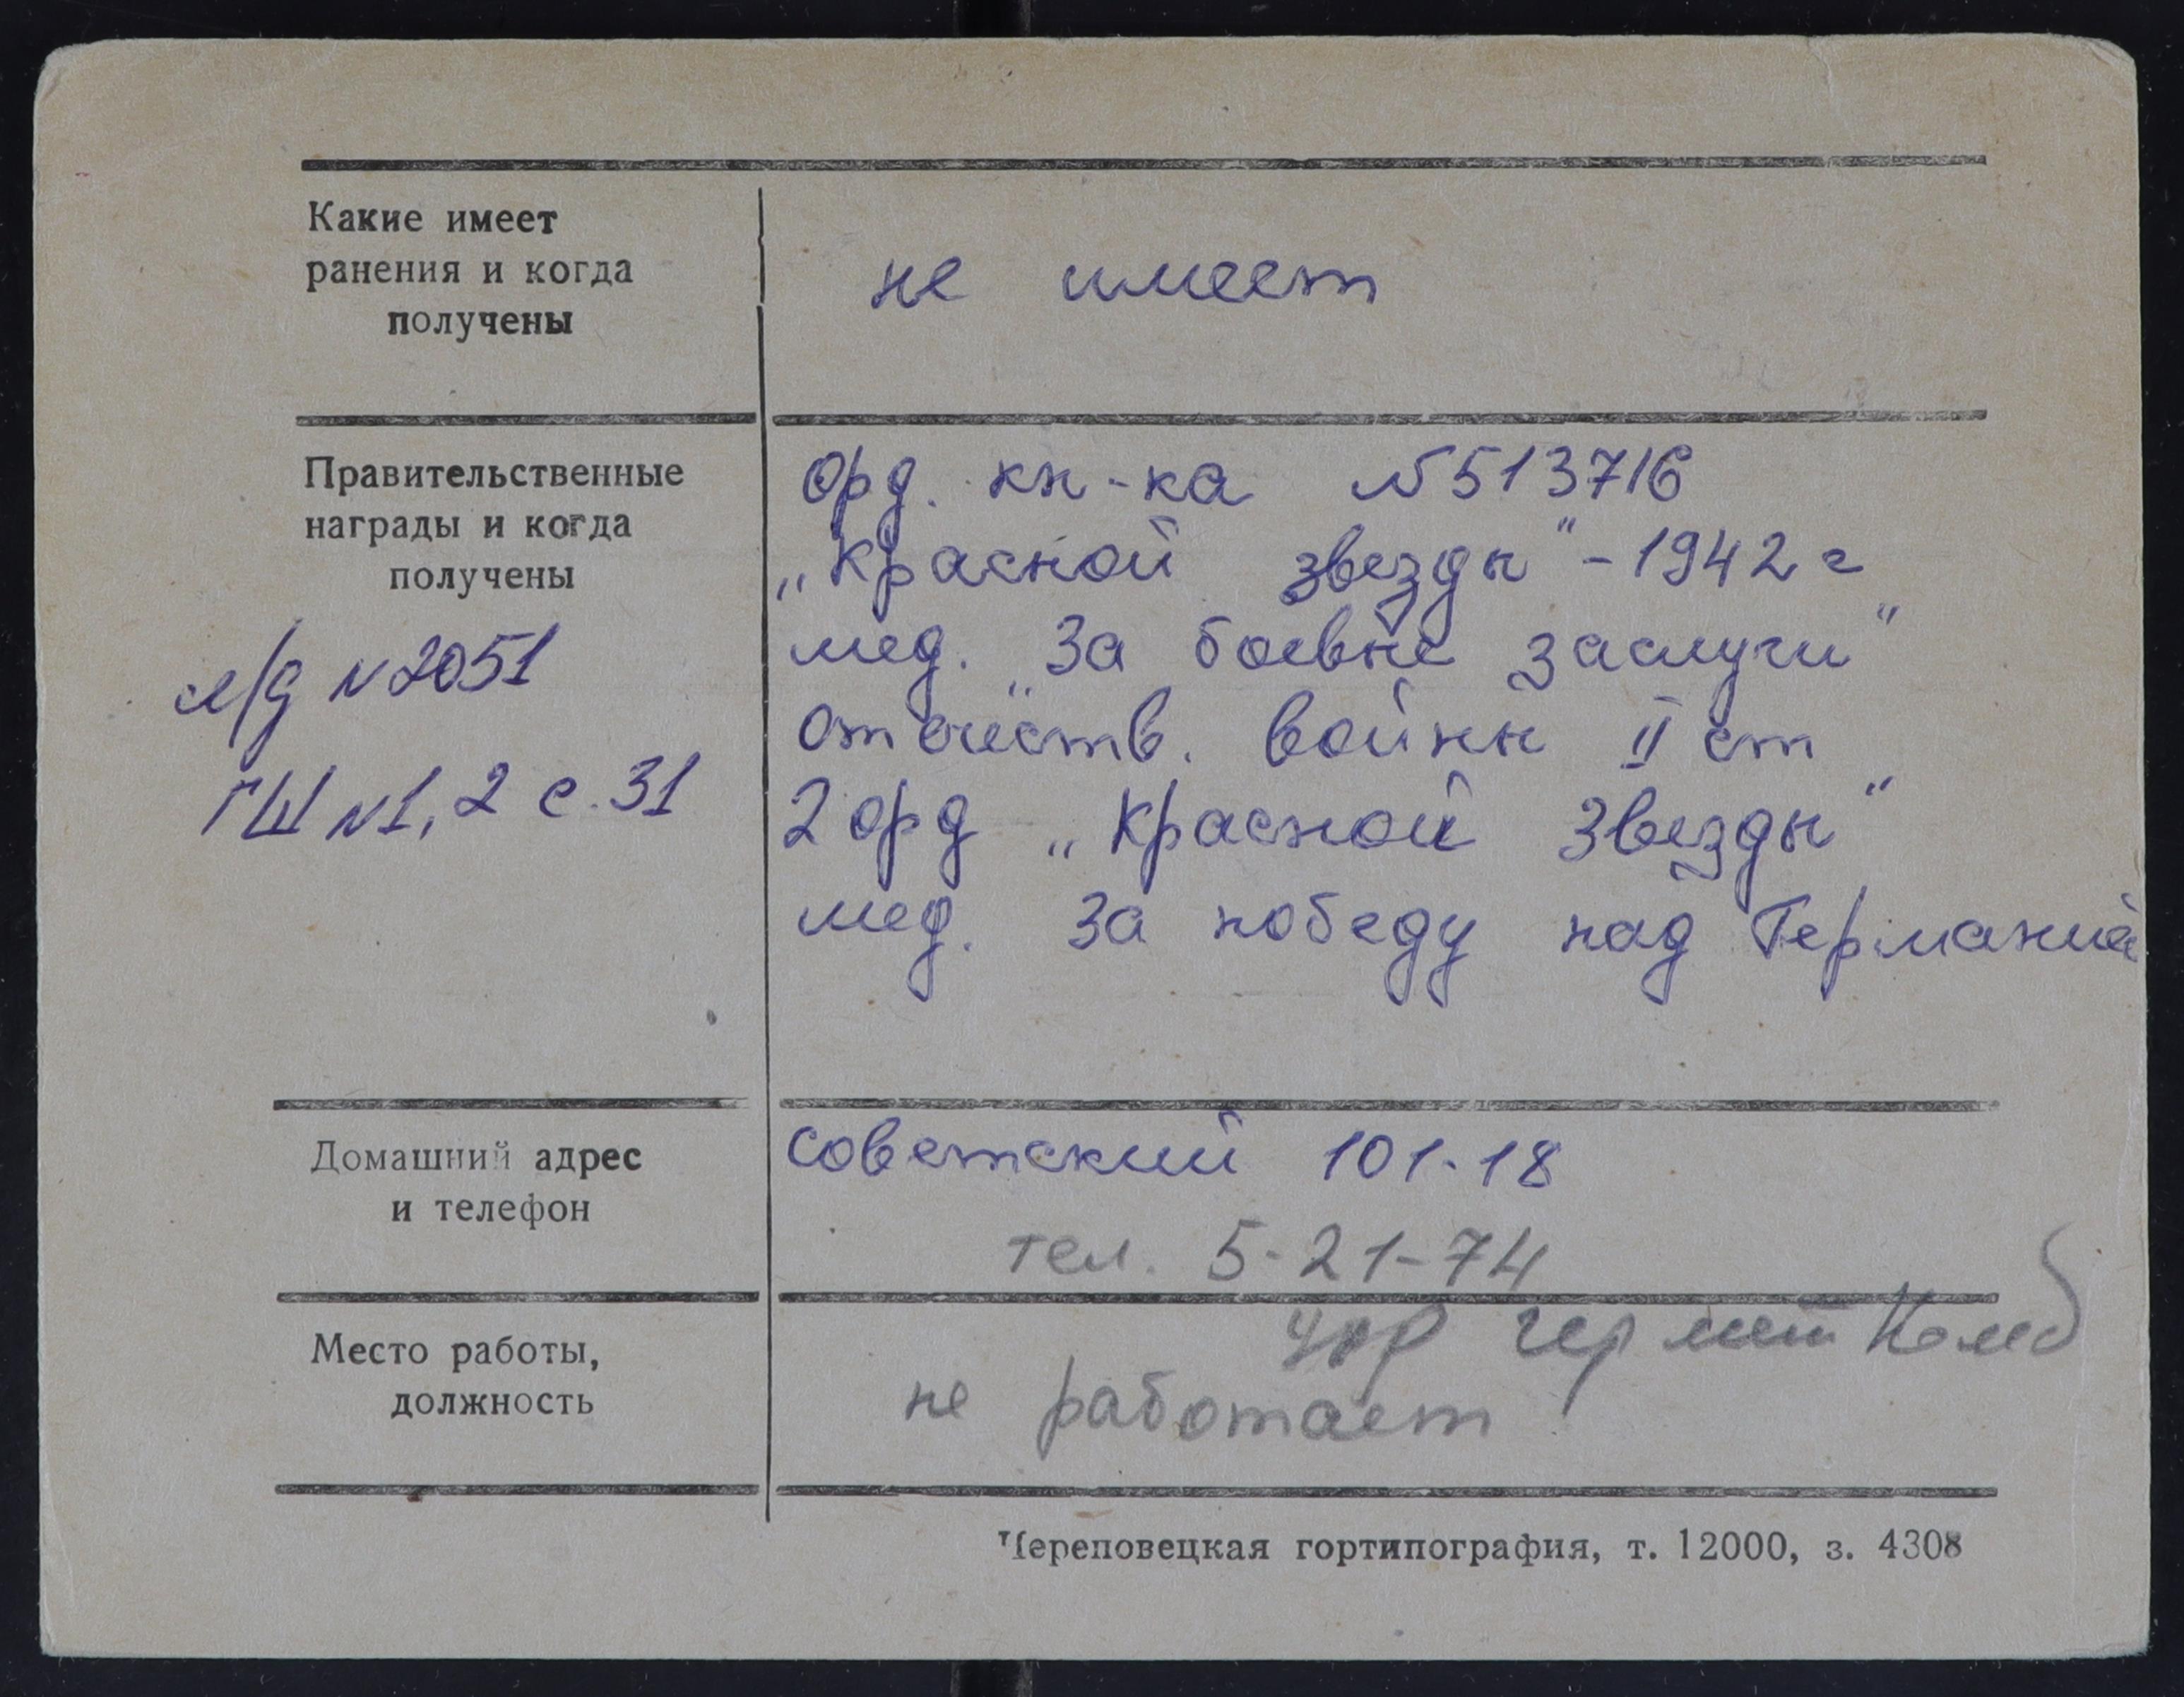 Какие имеет
ранения и когда
получены
не имеет
Правительственные
награды и когда
получены
л/д №2051
ГШ №1, 2 с. 31
орд. кн-ка №513716
„Красной звезды" - 1942 г
мед. „За боевые заслуги"
отечеств. войны II ст
2 орд „Красной Звезды"
мед. За победу над Германией
Домашний адрес
и телефон
Советский 101-18
тел. 5-21-74
Место работы,
должность
чер мет
не работает
Череповецкая гортипография, т. 12000, з. 4308